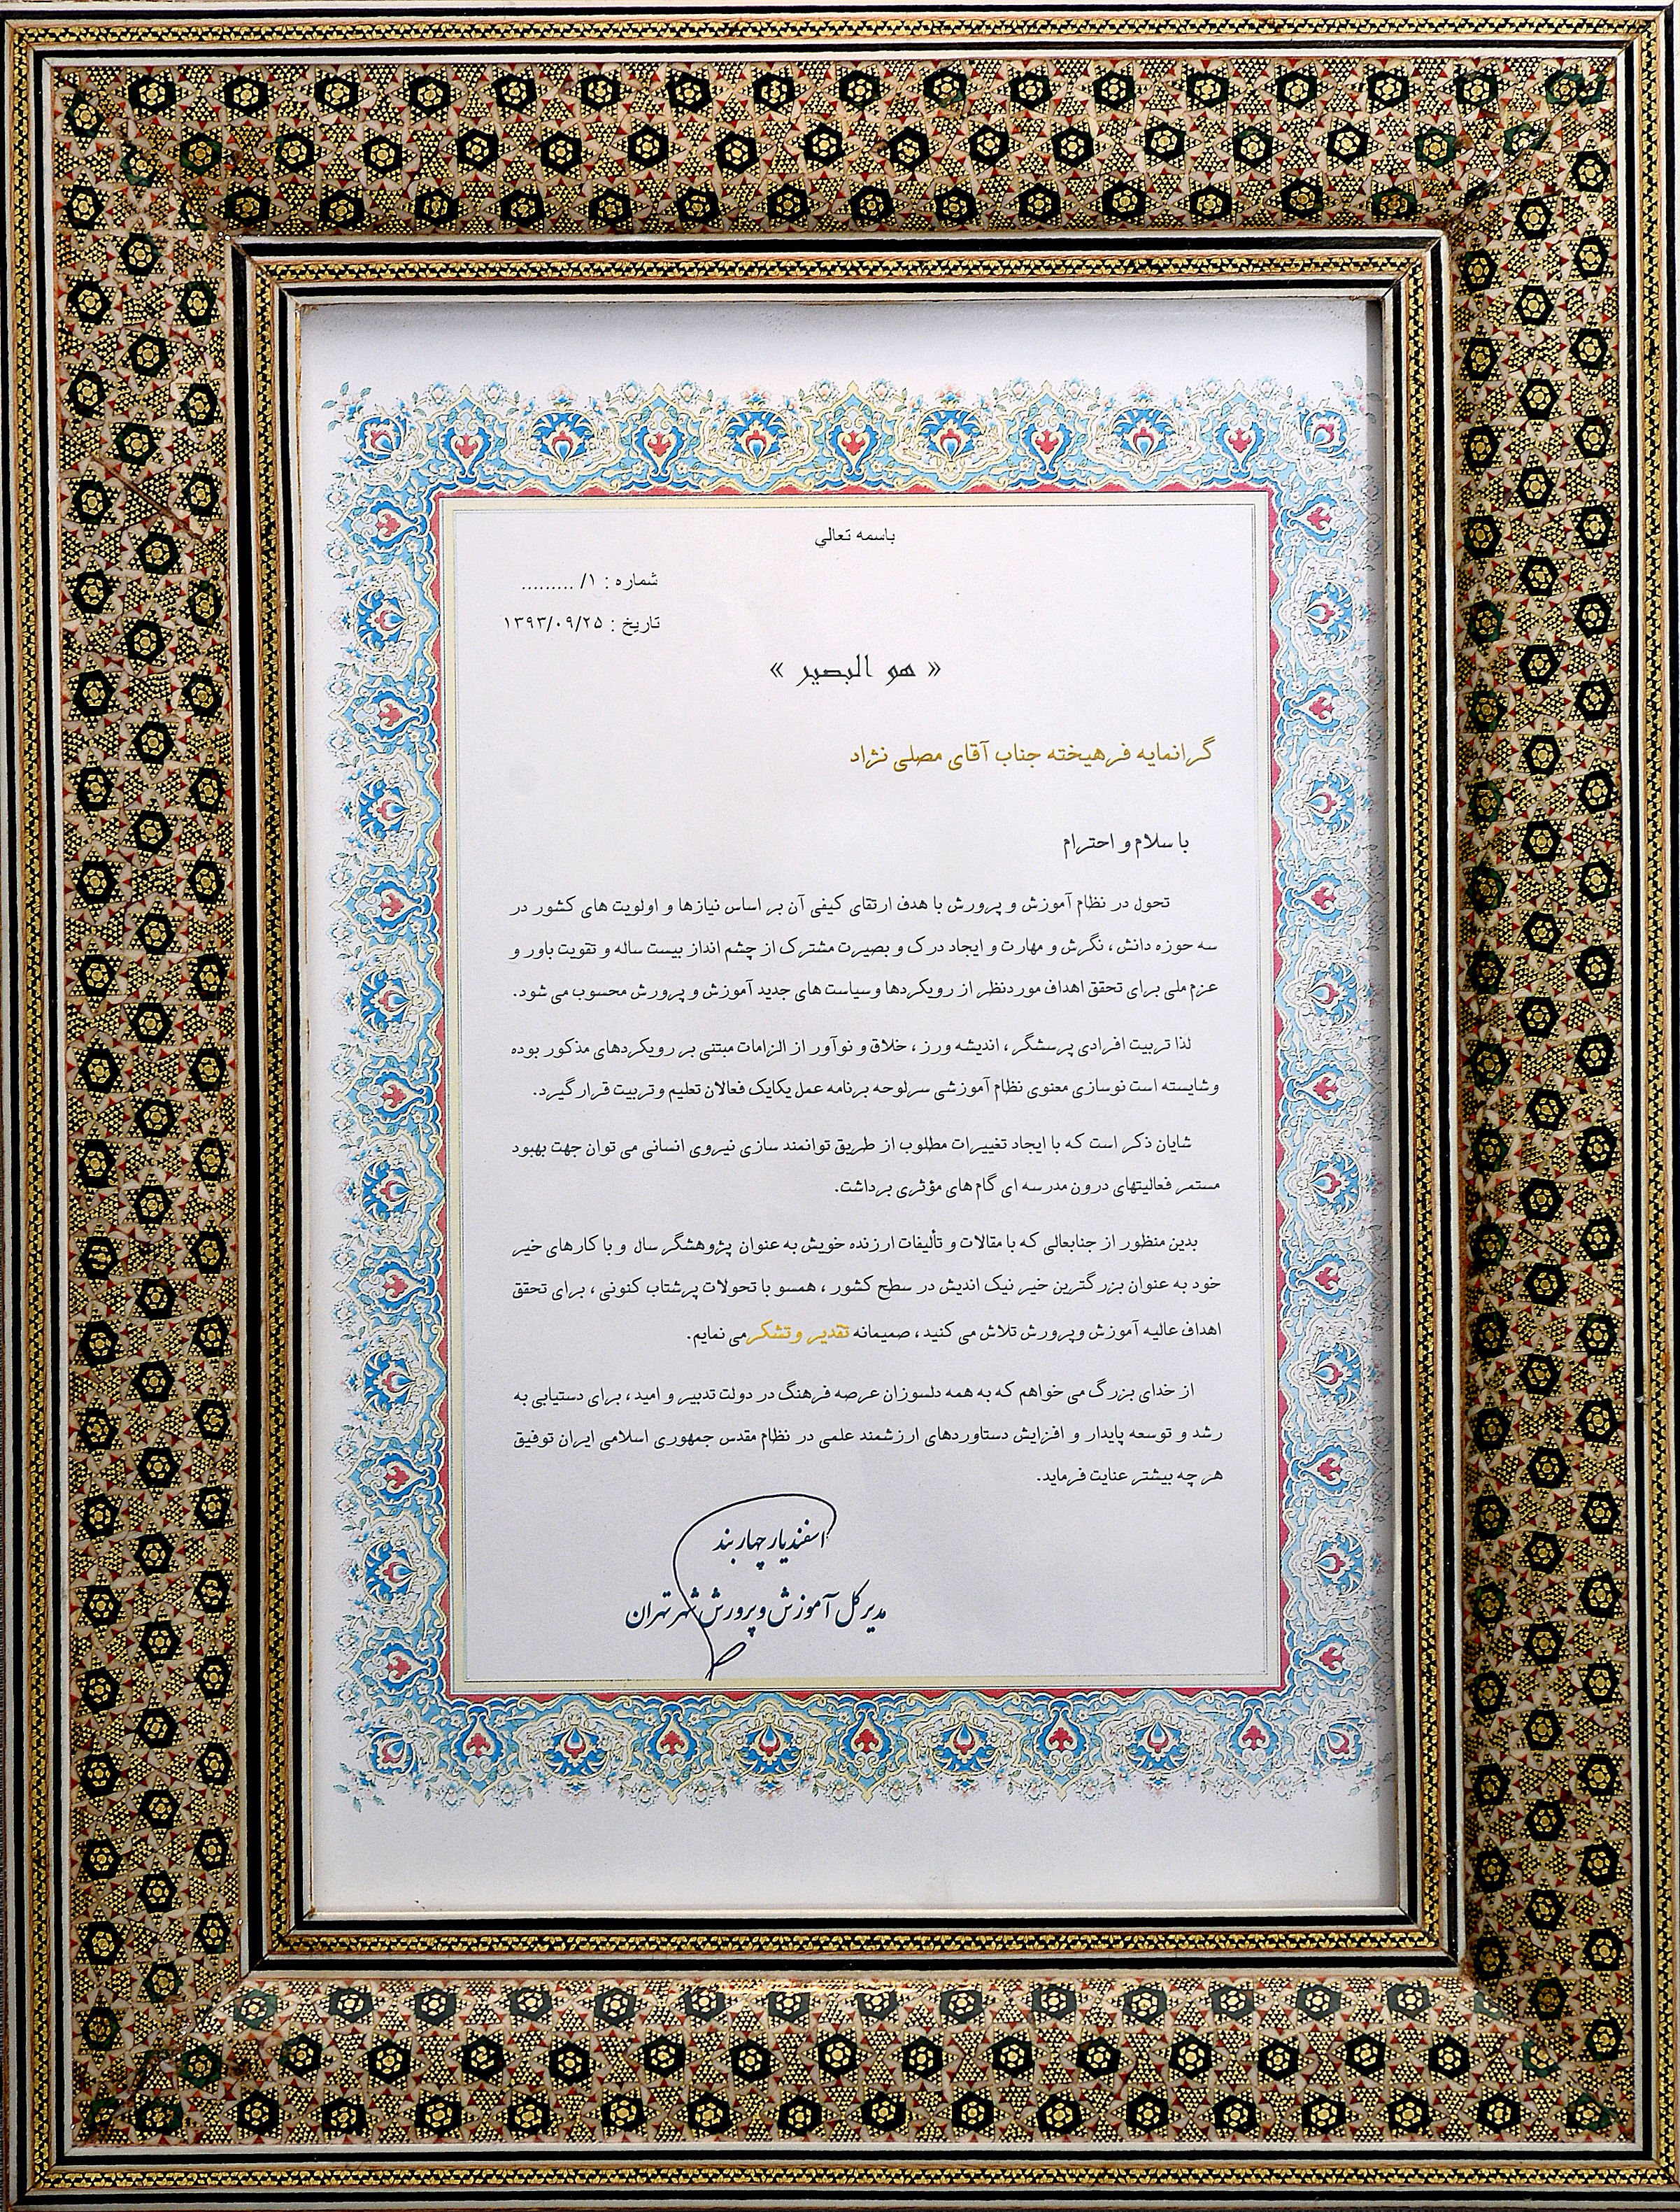 باسمه تعالي
شماره : ۱/ .........
تاریخ : ۱۳۹۳/۰۹/۲۵
« هو البصیر »
گرانمایه فرهیخته جناب آقای مصلی نژاد
با سلام و احترام
تحول در نظام آموزش و پرورش با هدف ارتقای کیفی آن بر اساس نیازها و اولویت های کشور در
سه حوزه دانش ، نگرش و مهارت و ایجاد درک و بصیرت مشترک از چشم انداز بیست ساله و تقویت باور و
عزم ملی برای تحقق اهداف موردنظر از رویکردها و سیاست های جدید آموزش و پرورش محسوب می شود.
لذا تربیت افرادی پرسشگر ، اندیشه ورز ، خلاق و نوآور از الزامات مبتنی بر رویکردهای مذکور بوده
و شایسته است نوسازی معنوی نظام آموزشی سرلوحه برنامه عمل یکایک فعالان تعلیم و تربیت قرار گیرد.
شایان ذکر است که با ایجاد تغییرات مطلوب از طریق توانمند سازی نیروی انسانی می توان جهت بهبود
مستمر فعالیتهای درون مدرسه ای گام های مؤثری برداشت.
بدین منظور از جنابعالی که با مقالات و تألیفات ارزنده خویش به عنوان پژوهشگر سال و با کارهای خیر
خود به عنوان بزرگترین خیر نیک اندیش در سطح کشور ، همسو با تحولات پرشتاب کنونی ، برای تحقق
اهداف عالیه آموزش و پرورش تلاش می کنید ، صمیمانه تقدیر و تشکر می نمایم.
از خدای بزرگ می خواهم که به همه دلسوزان عرصه فرهنگ در دولت تدبیر و امید ، برای دستیابی به
رشد و توسعه پایدار و افزایش دستاوردهای ارزشمند علمی در نظام مقدس جمهوری اسلامی ایران توفیق
هر چه بیشتر عنایت فرماید.
اسفندیار چهاربند
مدیرکل آموزش و پرورش شهر تهران